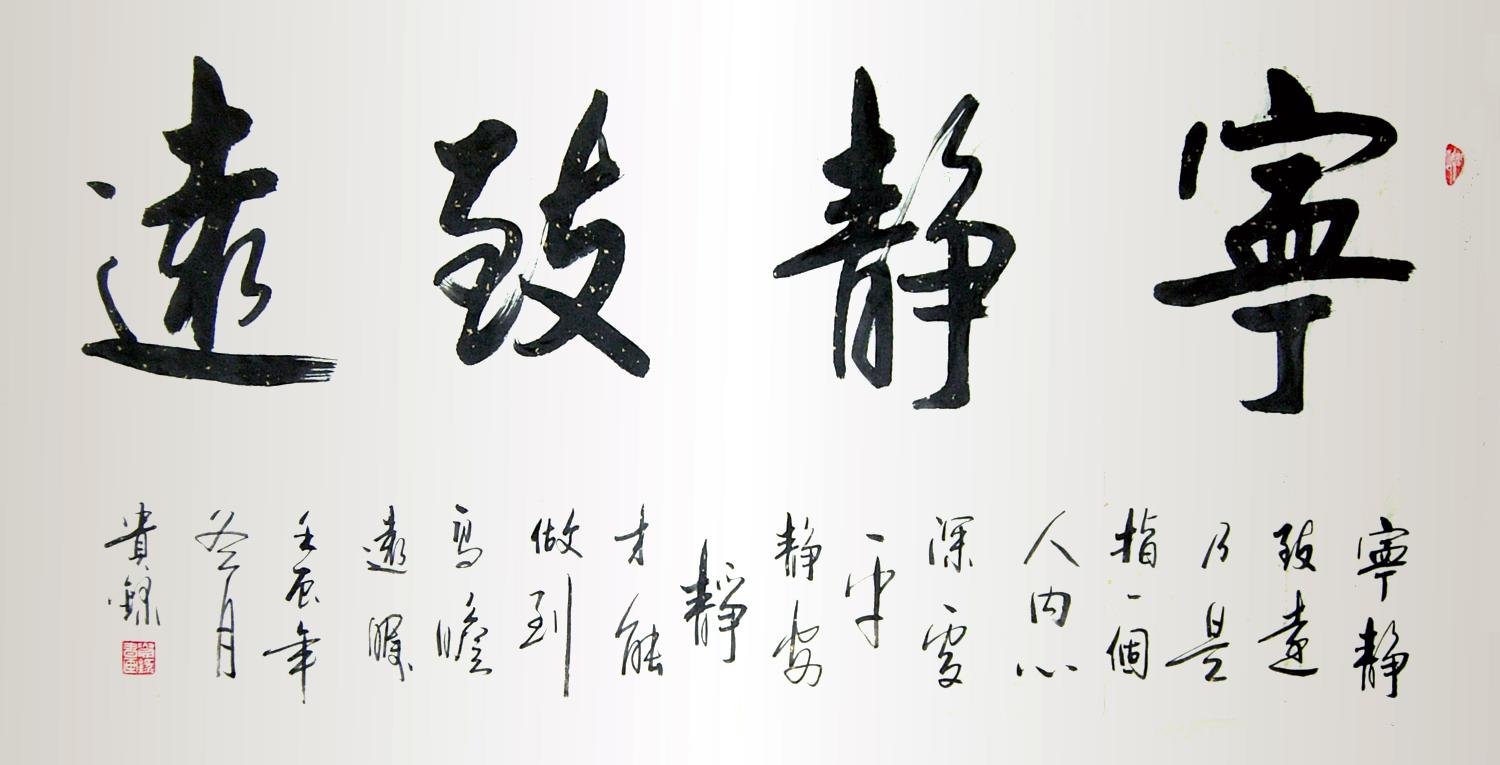 寧静致遠
寧静
致遠
乃是
指一個
人内心
深處
一平
静安
靜
才能
做到
高瞻
遠矚
壬辰年
冬月
貴